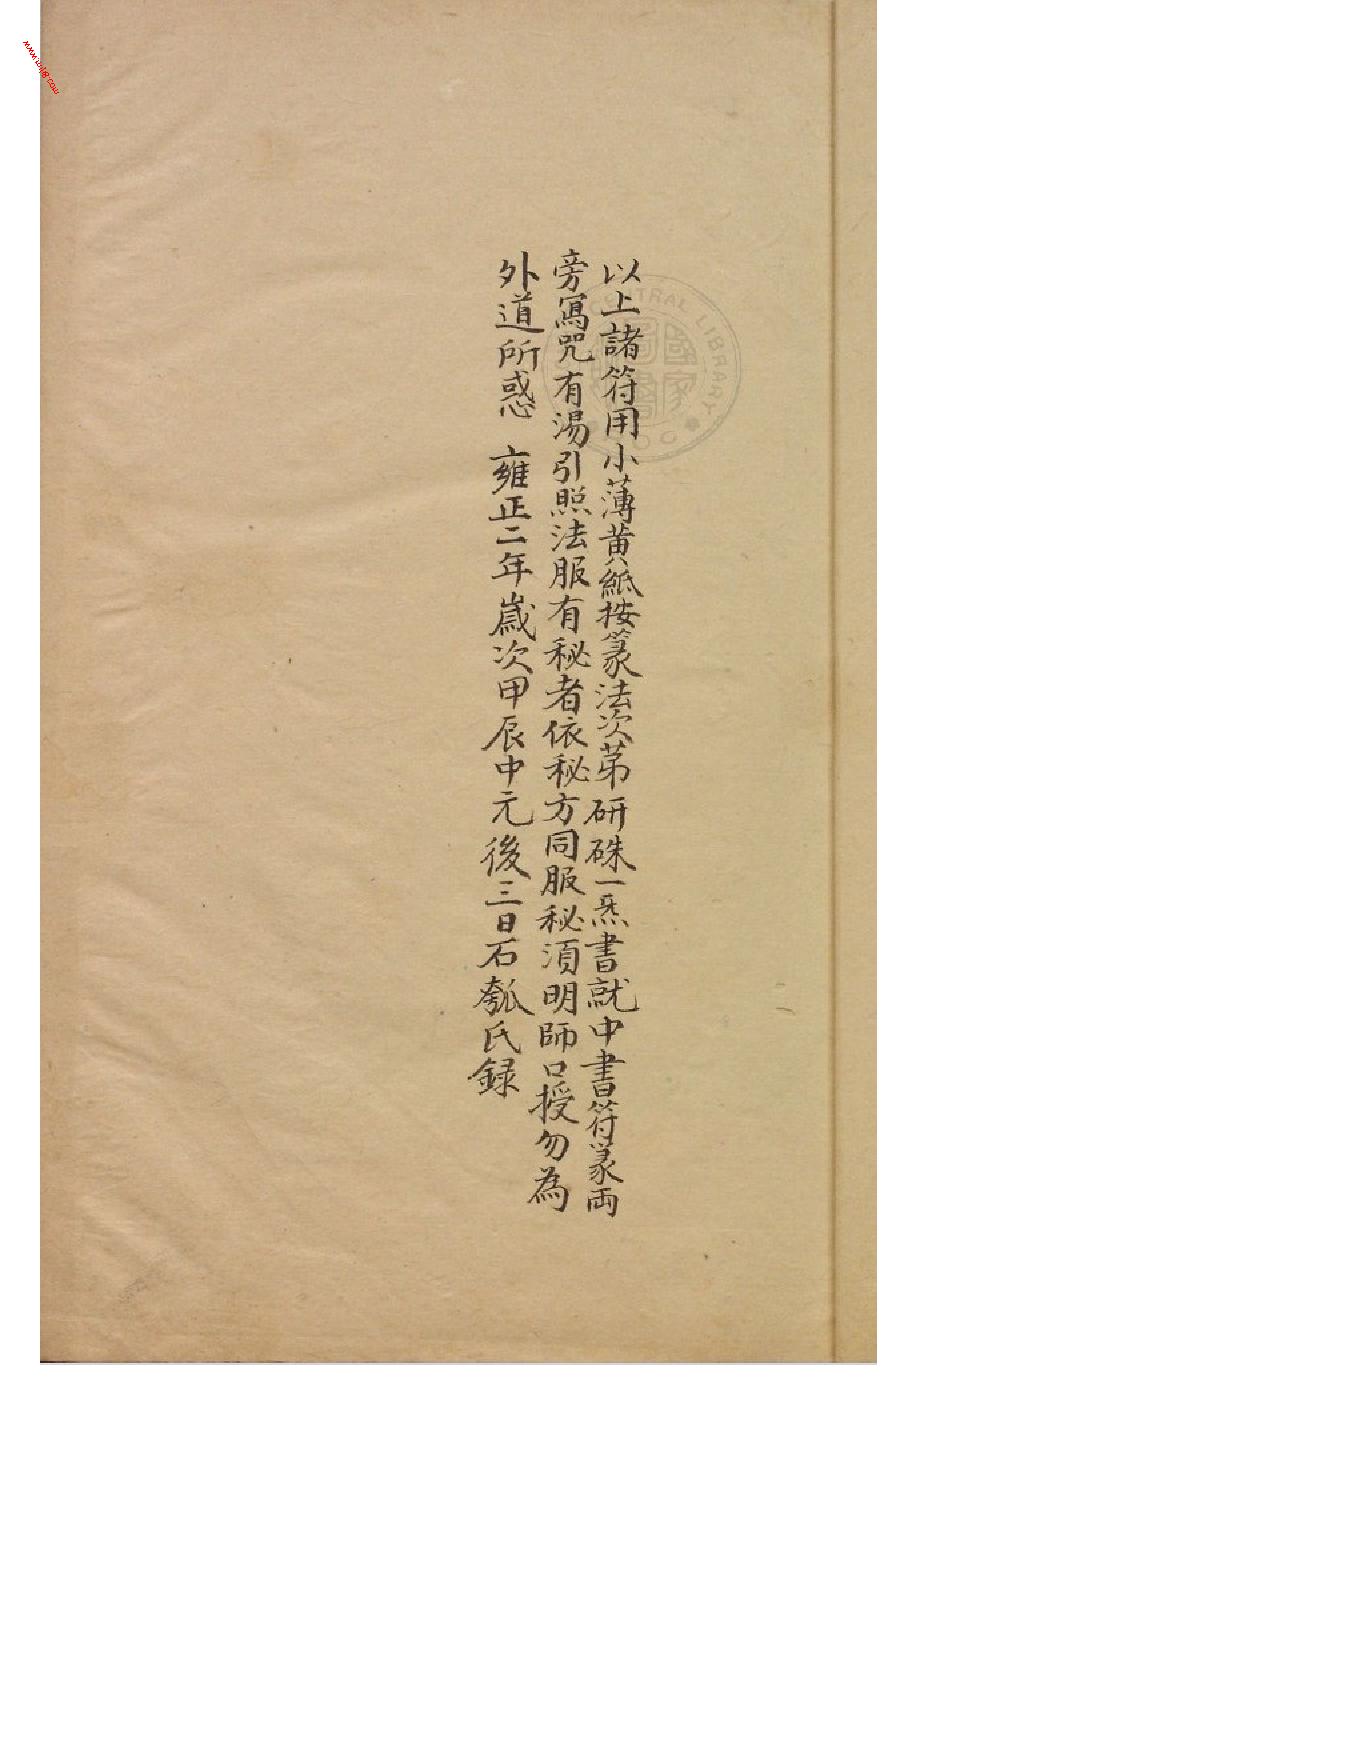 以上諸符用小薄黄紙按篆法次苐研硃一炁書就中書符篆両
旁寫咒有湯引照法服有秘者依秘方同服秘須明師口授勿為
外道所惑　雍正二年嵗次甲辰中元後三日石瓠氏録
CENTRAL LIBRARY
國家圖書